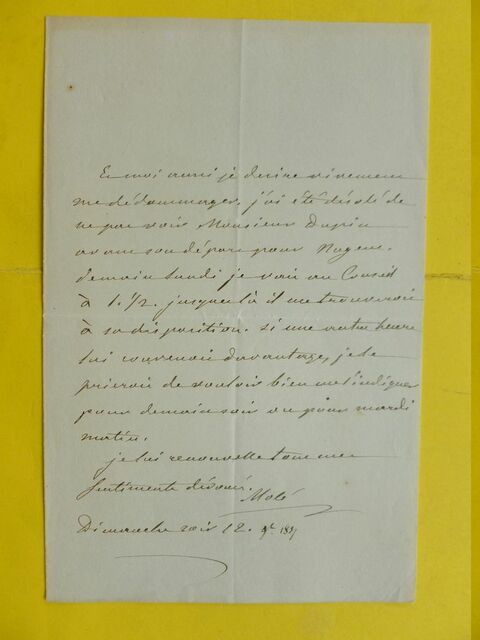 Et moi aussi je desire vivement
me dédommager. j'ai été désolé de
ne pas voir Monsieur Dupin
avant son départ pour
demain lundi je vais au Conseil
à 1. 1/2. jusque là il me trouveroit
à sa disposition. si une autre heure
lui convenoit davantage, je le
prierois de vouloir bien me l'indiquer
pour demain soir ou pour mardi
matin.
je lui renouvelle tous mes
sentiments dévoués.
Molé
Dimanche soir 12.